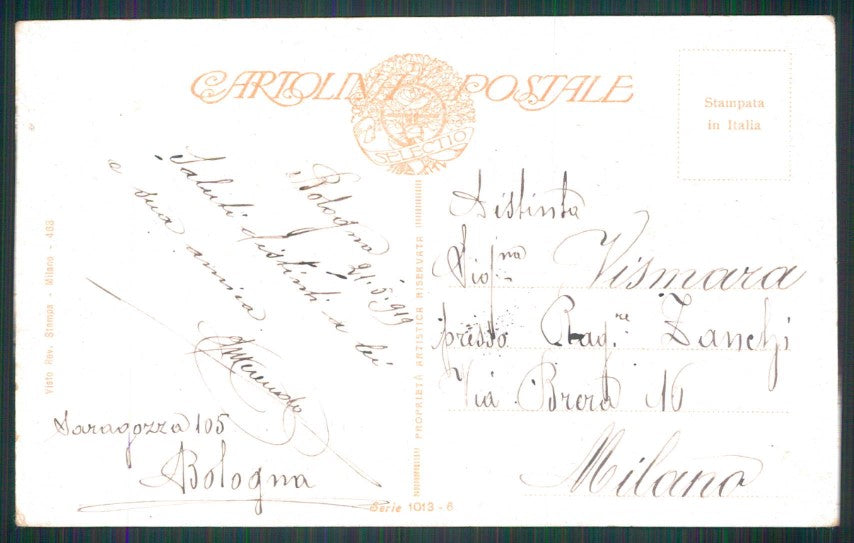 CARTOLINA POSTALE
SELECTIO
Stampata
in Italia
Bologna 21.5.919
Saluti distinti a lei
e sua amica
Saragozza 105
Bologna
Distinta
Sig.na Vismara
presso Rag.re Zanchi
Via Brera 16
Milano
PROPRIETÀ ARTISTICA RISERVATA
Visto Rev. Stampa - Milano - 463
Serie 1013 - 6